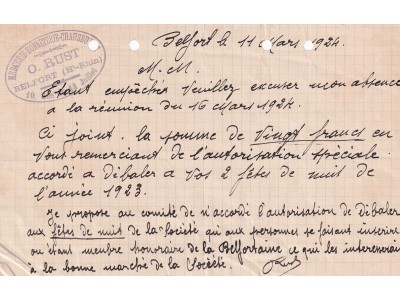 MERCERIE-BONNETERIE-CHAUSSURES
O. RUST
BELFORT (Ht-Rhin)
Belfort le 11 Mars 1924.
M.M.
Etant empêchés veuillez excuser mon absence
a la réunion du 16 Mars 1924.
Ci joint. la somme de Vingt francs en
Vous remerciant de l'autorisation spéciale
accordé a débaler a vos 2 fêtes de nuit de
l'année 1923.
Je propose au comité de n'accordé l'autorisation de débaler
aux fêtes de nuit de la Société qui aux personnes se faisant inscrire
ou étant membre honoraire de la Belfortaine ce qui les interesserais
à la bonne marche de la Société.
Rust